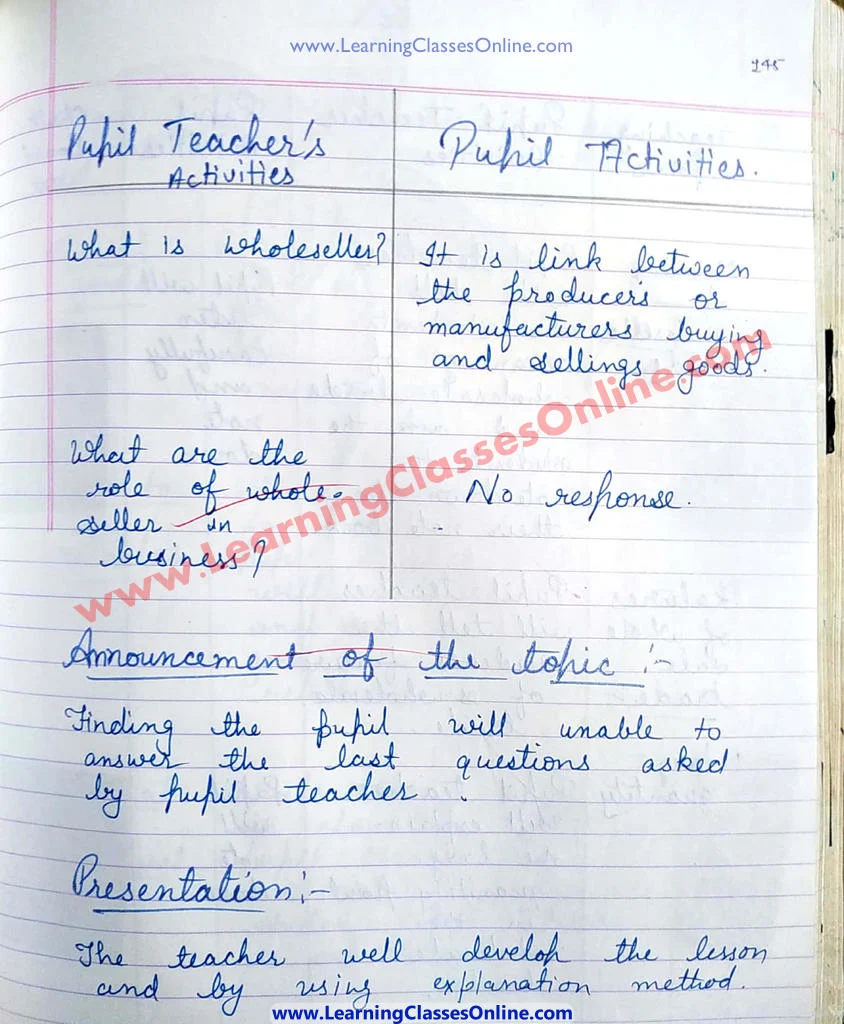 www.LearningClassesOnline.com
145
Pupil Teacher's Activities
Pupil Activities.
What is wholeseller?
It is link between
the producers or
manufacturers buying
and sellings goods.
What are the
role of whole-
seller in
business?
No response.
www.LearningClassesOnline.com
Announcement of the topic :-
Finding the pupil will unable to
answer the last questions asked
by pupil teacher.
Presentation:-
The teacher well develop the lesson
and by using explanation method.
www.LearningClassesOnline.com